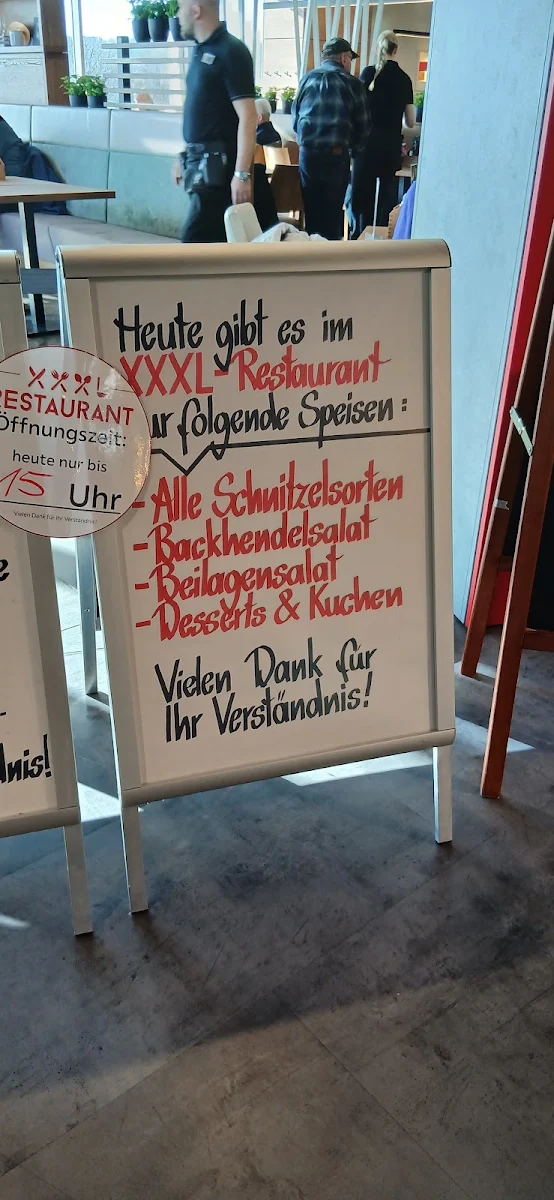 Heute gibt es im
XXXL-Restaurant
ur folgende Speisen:
- Alle Schnitzelsorten
- Backhendelsalat
- Beilagensalat
- Desserts & Kuchen
Vielen Dank für
Ihr Verständnis!
XXXL
RESTAURANT
Öffnungszeit:
heute nur bis
15 Uhr
Vielen Dank für Ihr Verständnis!
e
dnis!